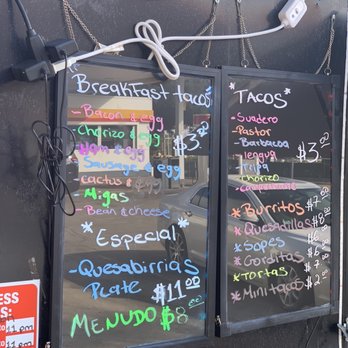 BreakFast tacos
- Bacon & egg
- Chorizo & egg
- Ham & egg
- Sausage & egg
- cactus & egg
- Migas
- Bean & cheese
$3.00
* Especial *
- Quesabirrias
Plate $11.00
MENUDO $8.00
* TACOS *
- Suadero
- Pastor
- Barbacoa
- lengua
- Tripa
- Chorizo
$3.00
* Burritos $7
* Quesadillas $8
* Sopes
* Gorditas
* Tortas
* Mini tacos $2
ESS
S: